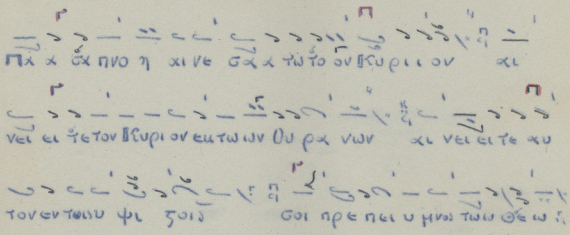 Πα α σα πνο η αι νε σα α τω το ον Κυριι ον αι
νει ει τε τον Κυριον εκ τω ων Ου ρα νων αι νει ει τε αυ
τον εν τοιου ψι ζοις σοι πρε πει υ μνω των Θε ω